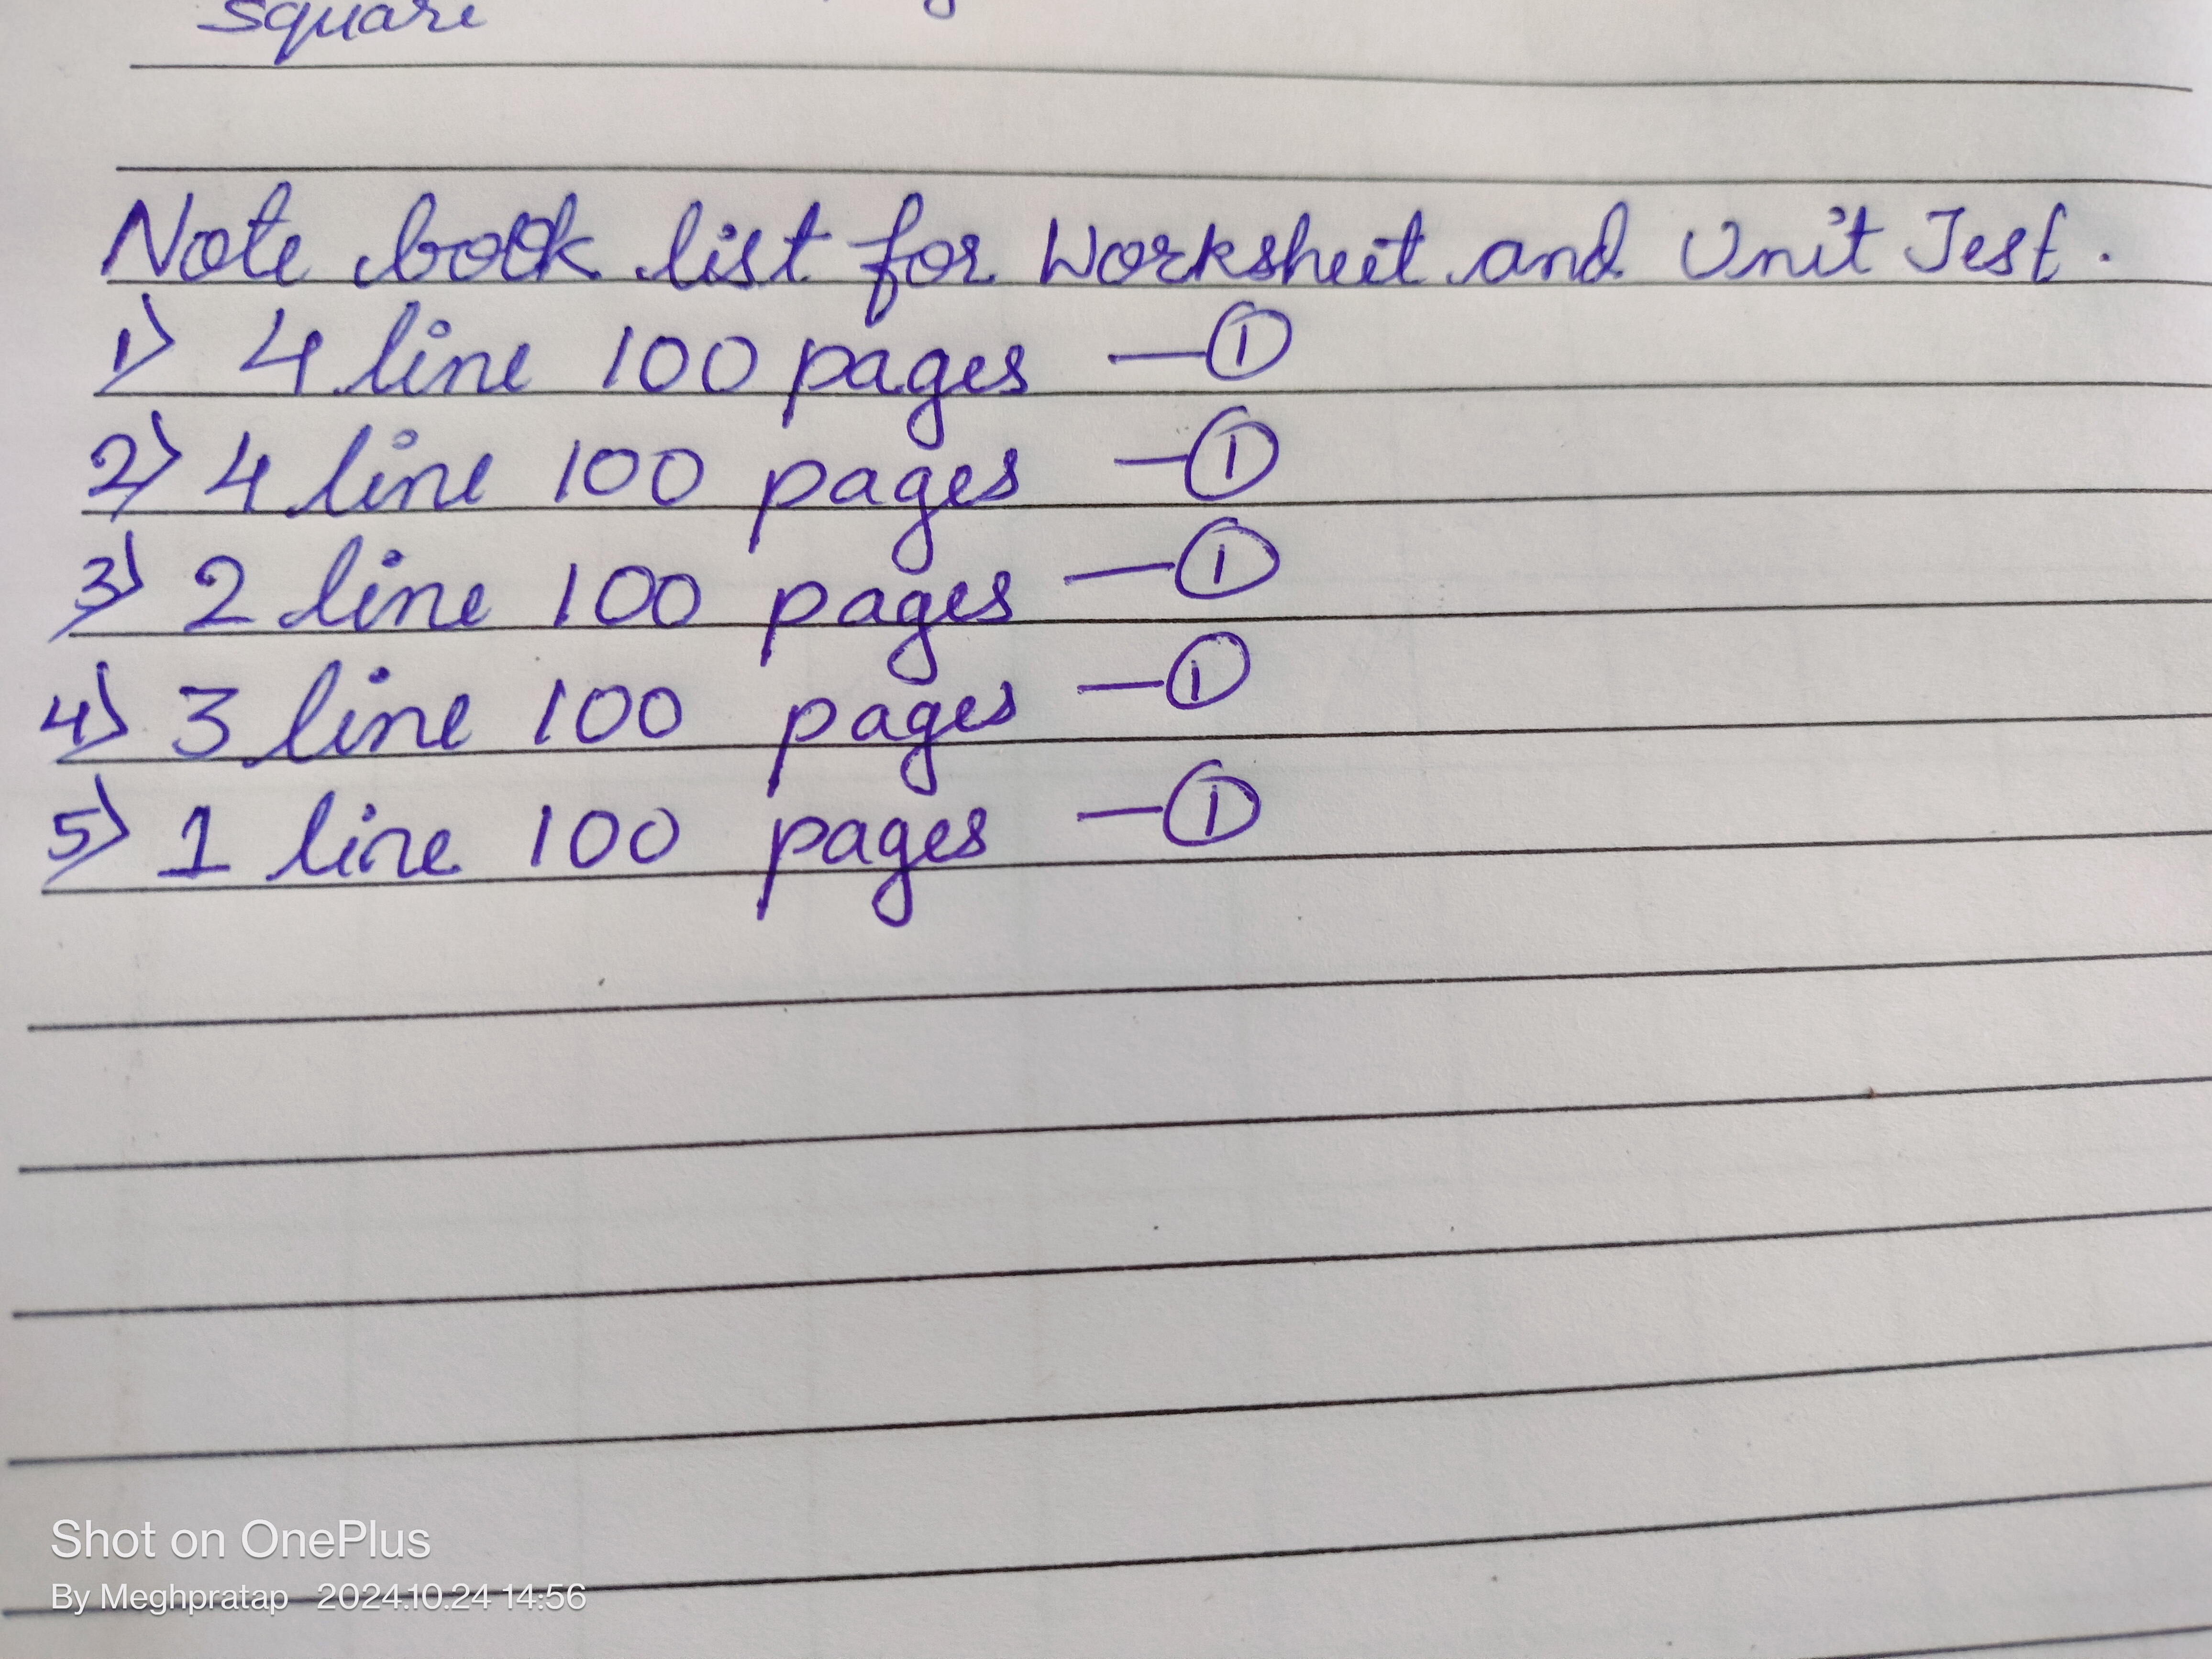 square
Note book list for Worksheet and Unit Test.
1) 4 line 100 pages — ①
2) 4 line 100 pages — ①
3) 2 line 100 pages — ①
4) 3 line 100 pages — ①
5) 1 line 100 pages — ①
Shot on OnePlus
By Meghpratap 2024.10.24 14:56